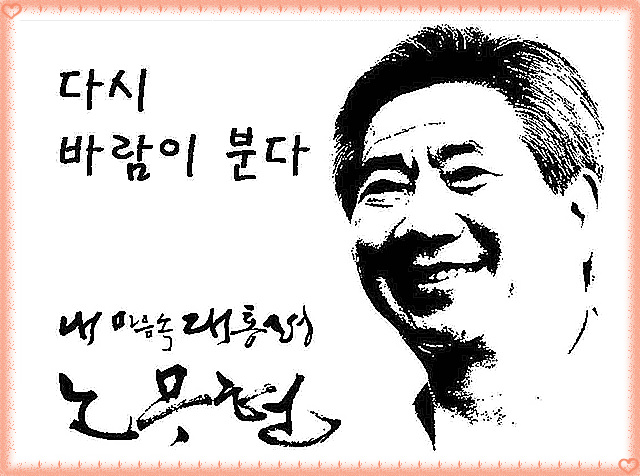 다시
바람이 분다
내 마음속 대통령
노무현